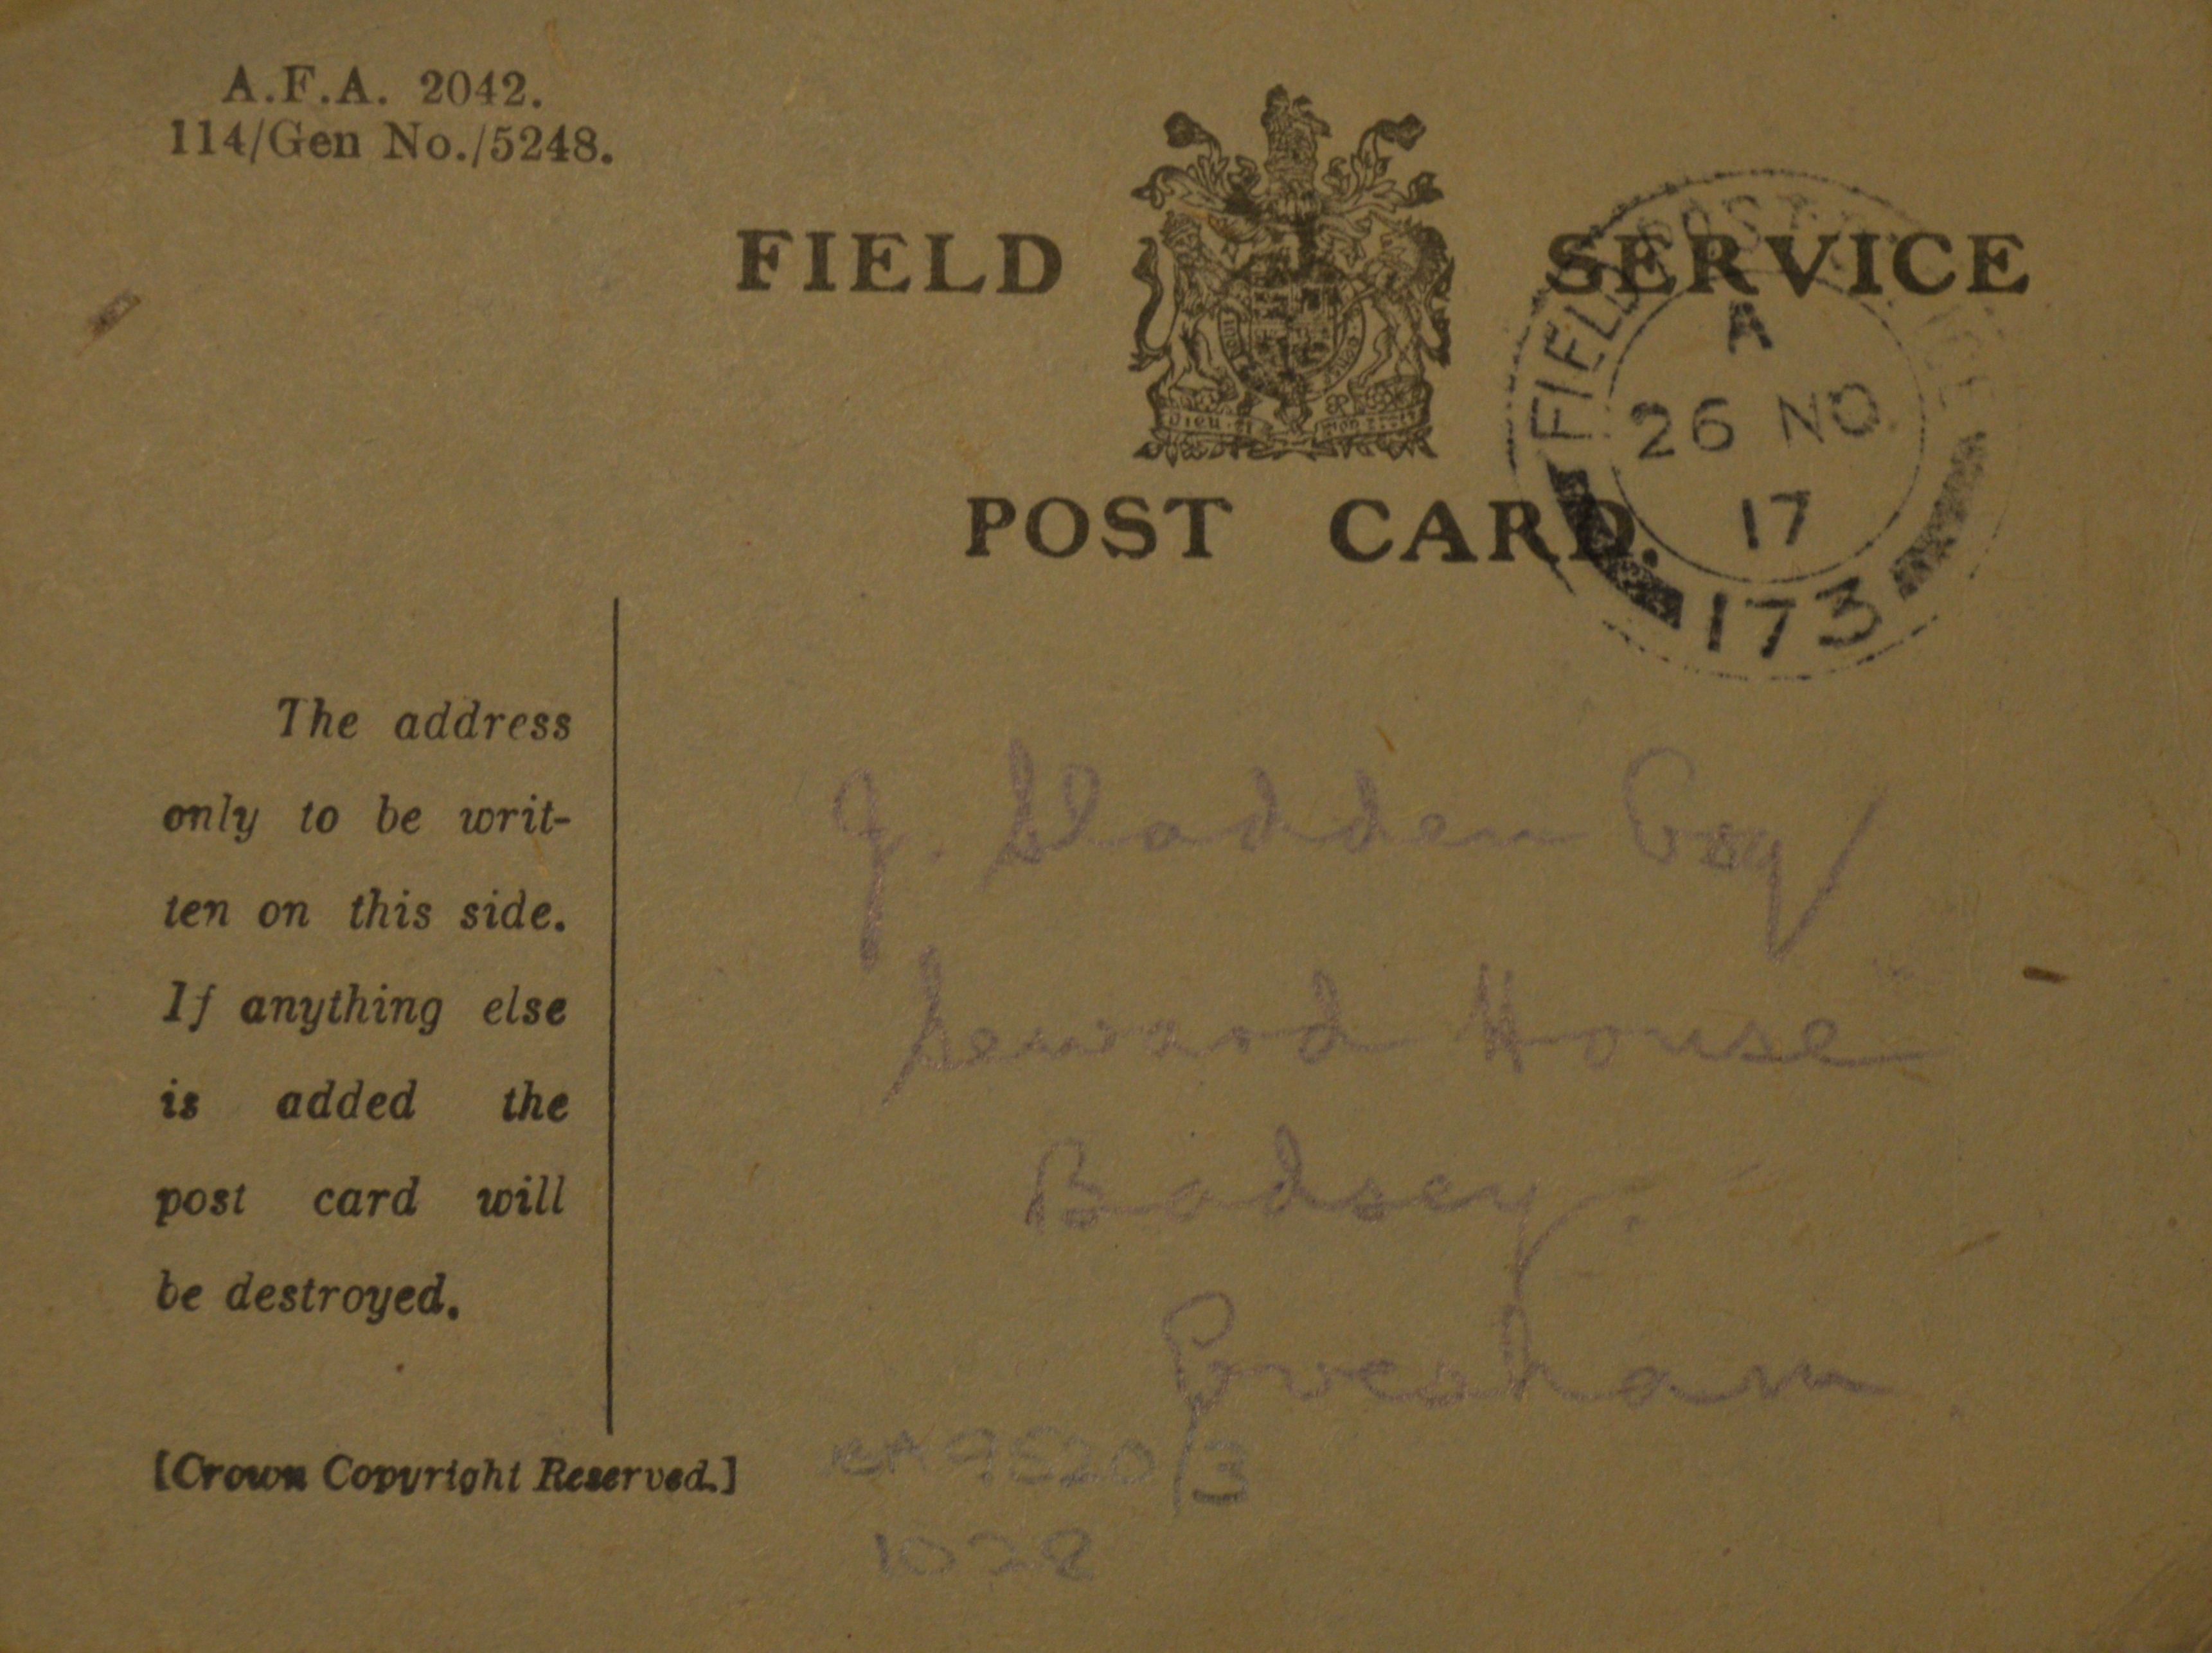 A.F.A. 2042.
114/Gen No./5248.
FIELD SERVICE
DIEU ET MON DROIT
FIELD POST OFFICE
A
26 NO
17
173
POST CARD.
The address
only to be writ-
ten on this side.
If anything else
is added the
post card will
be destroyed.
J. Sladden Esq
Seward House
Badsey.
Evesham.
[Crown Copyright Reserved.]
9520/3
1028